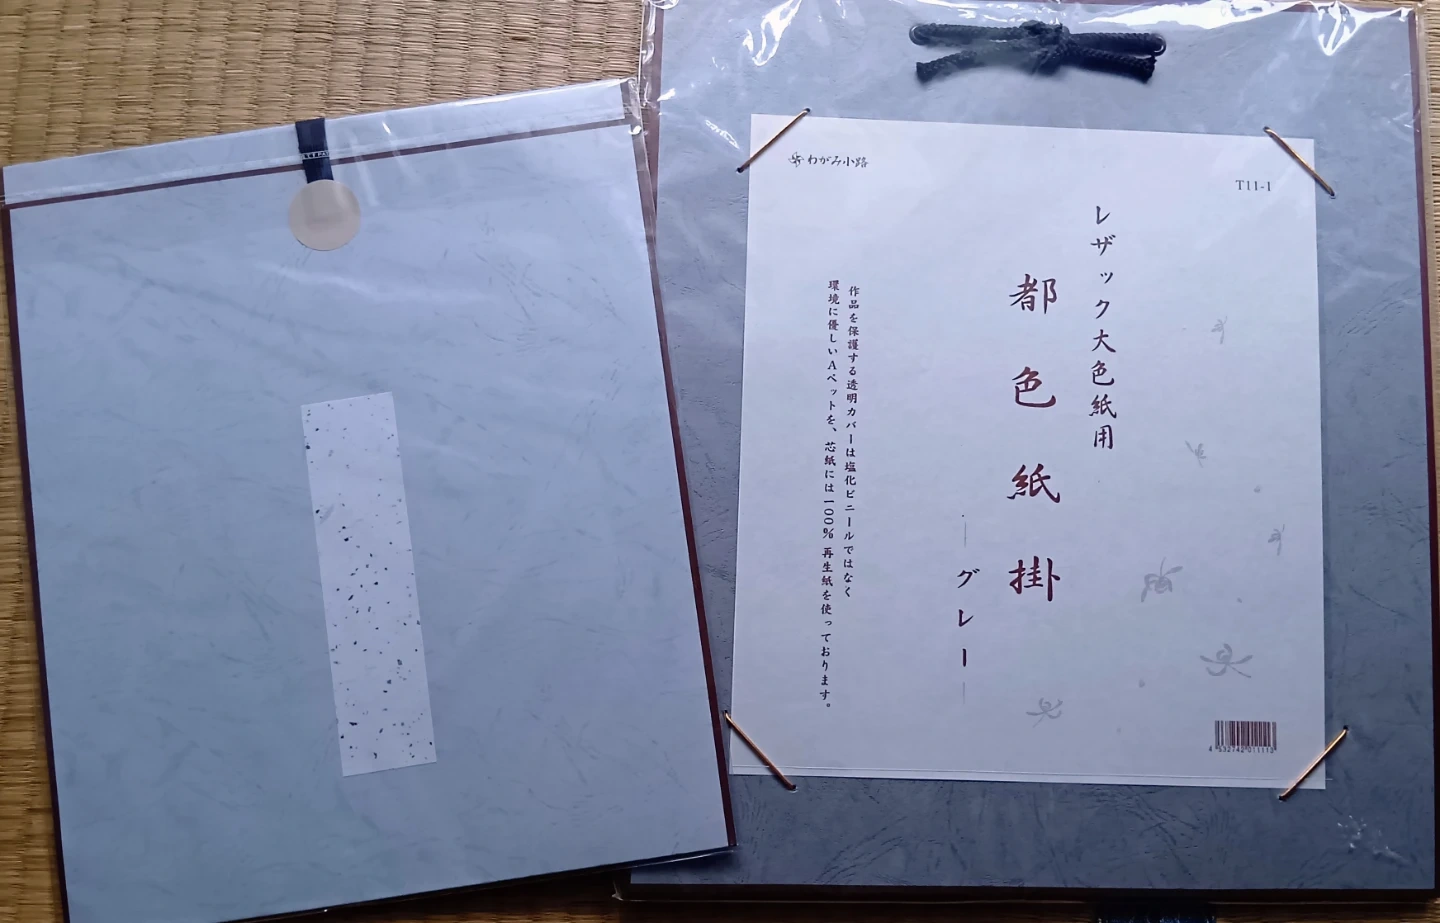 わがみ小路
T11-1
レザック大色紙用
都色紙掛
グレー
作品を保護する透明カバーは塩化ビニールではなく
環境に優しいAペットを、芯紙には100%再生紙を使っております。
4532742011113